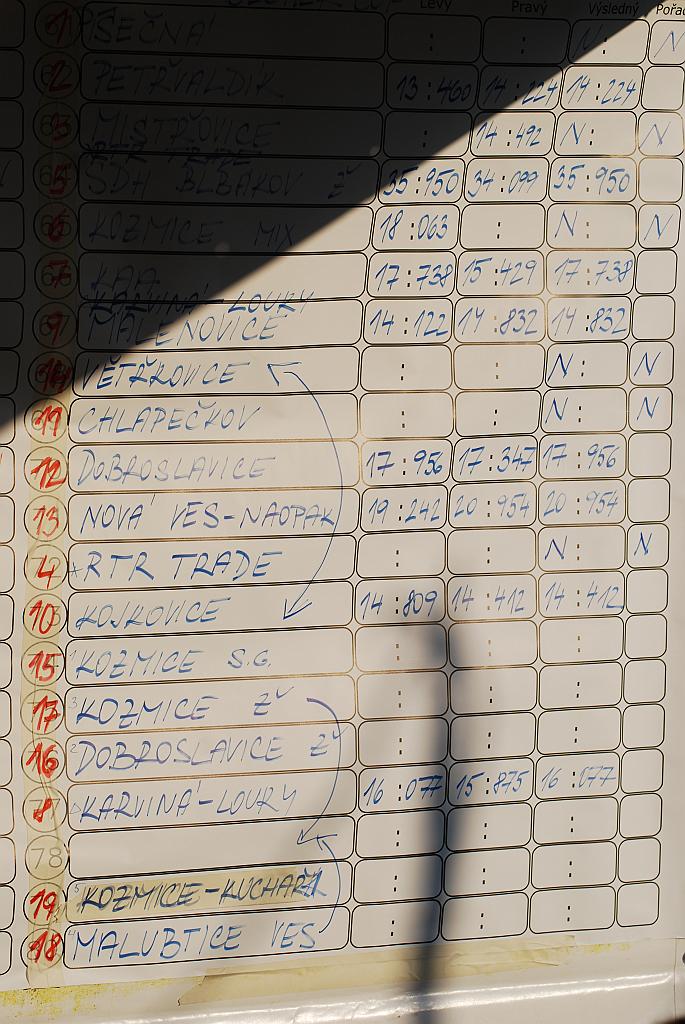 Levý Pravý Výsledný Pořa
1 SEČNÁ : : N: N
2 PETŘVALDÍK 13:460 14:224 14:224
3 MISTŘOVICE : 14:492 N: N
RTR TRADE
5 SDH BLBÁKOV Ž 35:950 34:099 35:950
6 KOZMICE MIX 18:063 : N: N
7 KAA 17:738 15:429 17:738
KARVINÁ-LOURY
9 MALENOVICE 14:122 14:832 14:832
14 VĚTŘKOVICE : : N: N
11 CHLAPEČKOV : : N: N
12 DOBROSLAVICE 17:956 17:347 17:956
13 NOVÁ VES-NAOPAK 19:242 20:954 20:954
4 RTR TRADE : : N: N
10 KOJKOVICE 14:809 14:412 14:412
15 KOZMICE S.G. : : :
17 KOZMICE Ž : : :
16 DOBROSLAVICE Ž : : :
8 KARVINÁ-LOURY 16:077 15:875 16:077
78 : : :
19 KOZMICE-KUCHAŘI : : :
18 MALUBTICE VES : : :